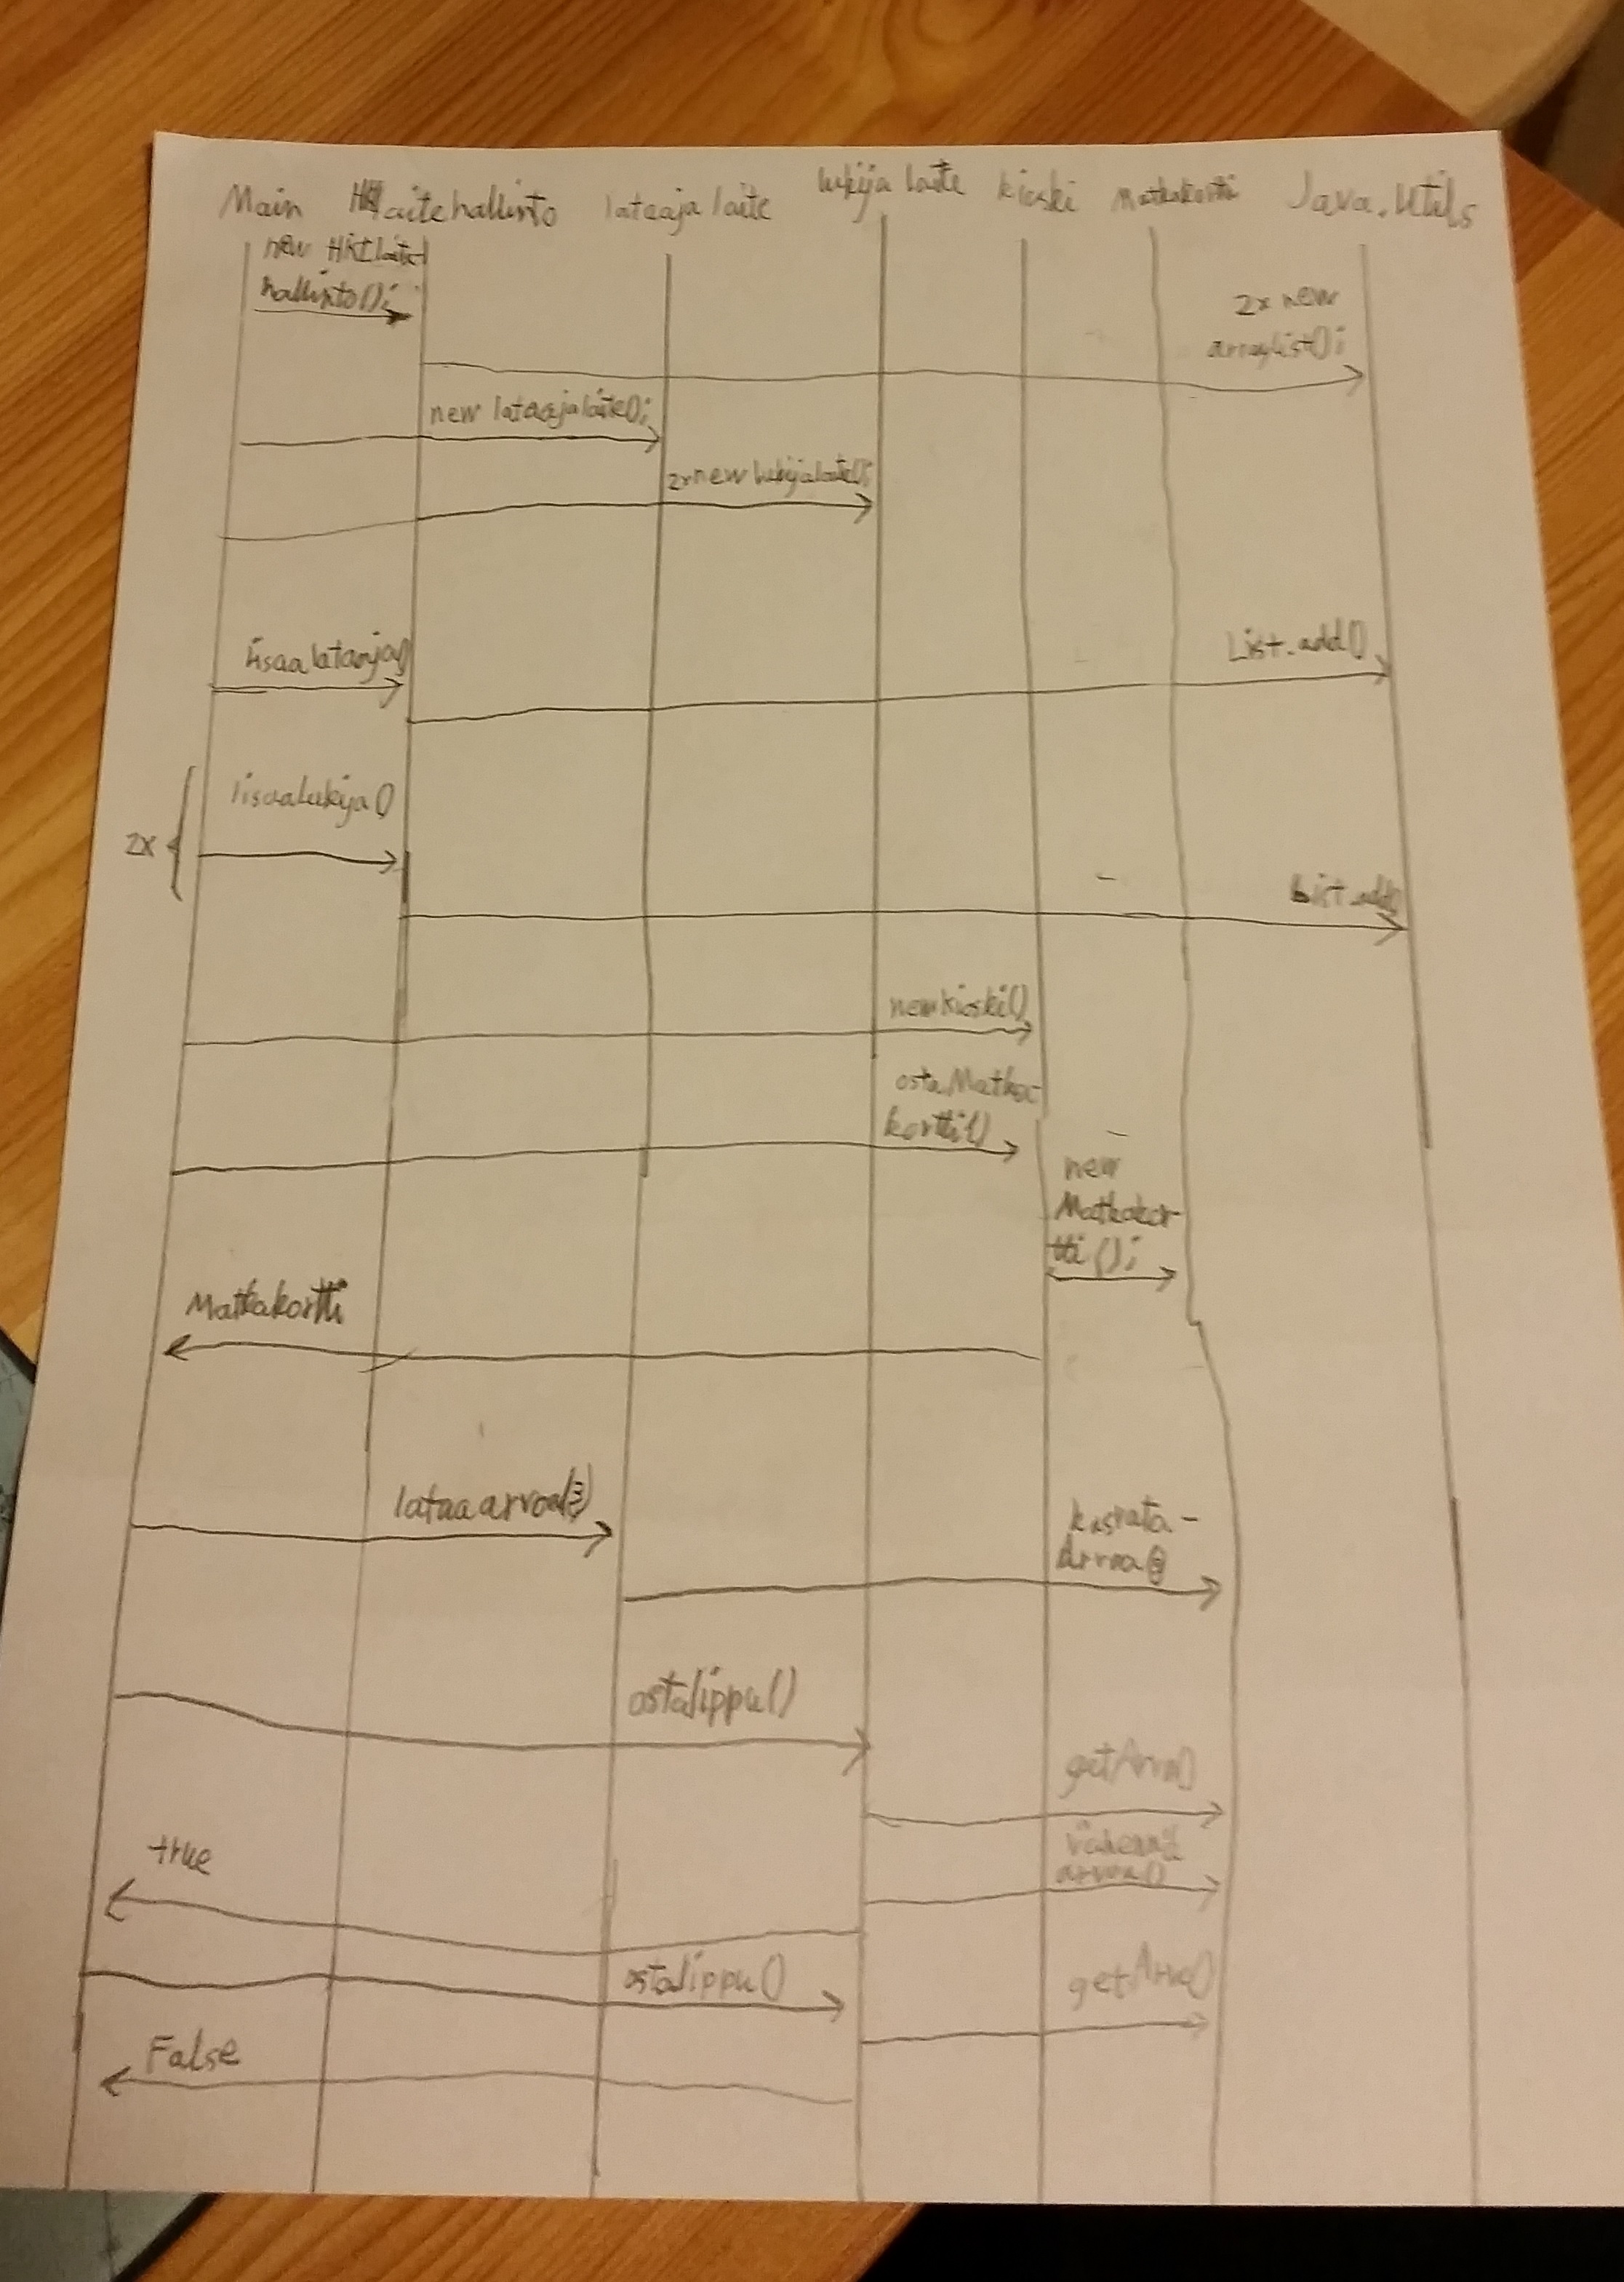 Main Hkllaitehallinto lataajalaite lukijalaite kioski Matkakortti Java.Utils
new HKIlaite-
hallinto();
2x new
arraylist();
new lataajalaite();
2x new lukijalaite();
lisaalataaja()
List.add()
lisaalukija()
2x
List.add()
new kioski()
osta Matka-
kortti()
new
Matkakor-
tti();
Matkakortti
lataaarvoa()
kasvata-
Arvoa()
ostalippu()
getArvo()
vähennä
arvoa()
true
ostalippu()
getArvo()
False